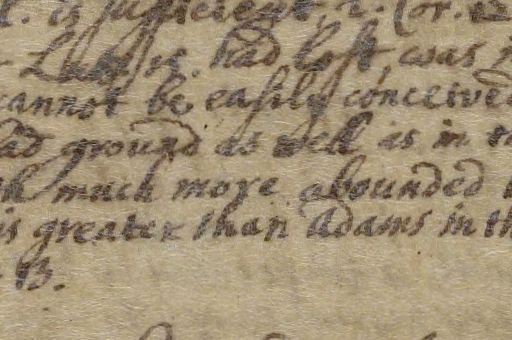 is sufficient, 2. Cor. 12
had lost, was
cannot be easily conceived
ground as well as in
much more abounded
is greater than Adams in th
13.